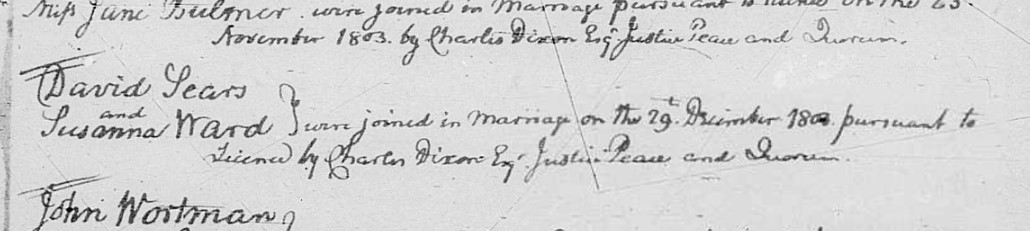 Miss Jane Bulmer were joined in Marriage pursuant to on the 23
November 1803. by Charles Dixon Esqr. Justice Peace and Quorum.
David Sears
and
Susanna Ward } were joined in Marriage on the 29.th December 1803. pursuant to
Licence by Charles Dixon Esqr. Justice Peace and Quorum.
John Wortman